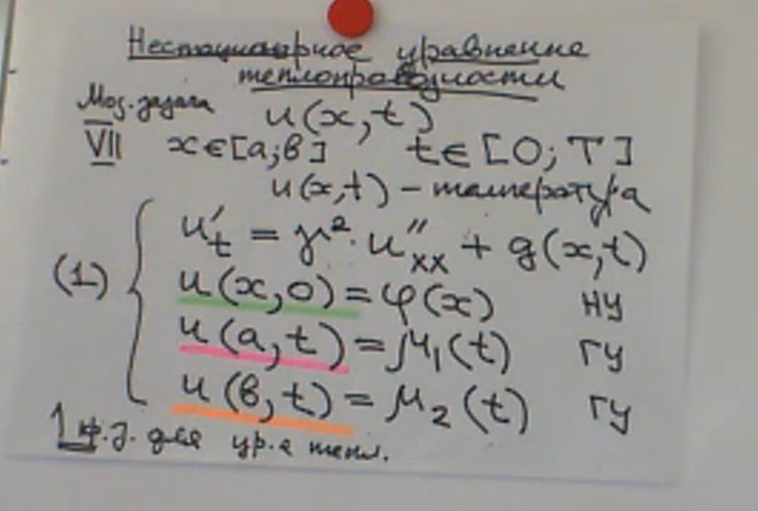 Нестационарное уравнение
теплопроводности
Мод. задача u(x,t)
VII x∈[a;в] t∈[0;T]
u(x,t) – температура
(1)
u′t = γ²·u″xx + g(x,t)
u(x,0) = φ(x) НУ
u(a,t) = μ₁(t) ГУ
u(в,t) = μ₂(t) ГУ
1 кр.з. для ур.я тепл.